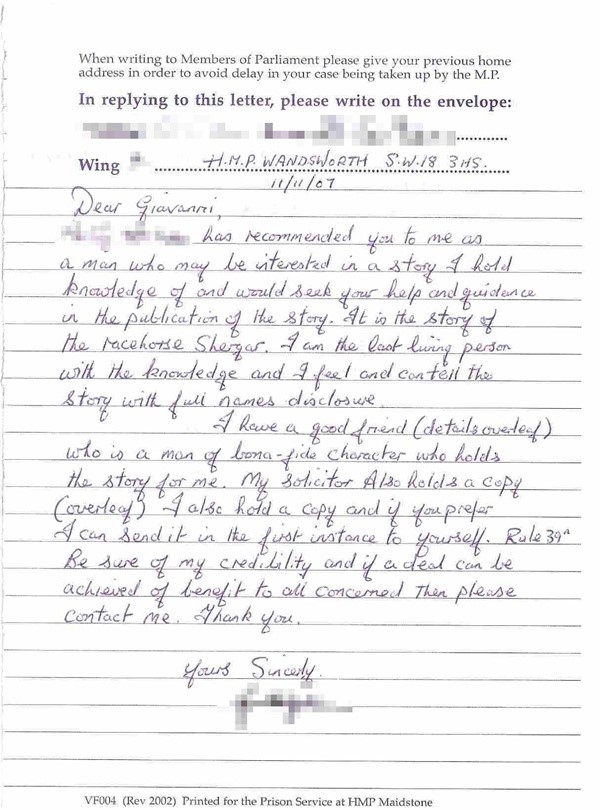 When writing to Members of Parliament please give your previous home
address in order to avoid delay in your case being taken up by the M.P.
In replying to this letter, please write on the envelope:
Wing H.M.P. WANDSWORTH S.W.18 3HS.
11/11/07
Dear Giavanni,
has recommended you to me as
a man who may be interested in a story I hold
knowledge of and would seek your help and guidance
in the publication of the story. It is the story of
the racehorse Shergar. I am the last living person
with the knowledge and I feel and can tell the
story with full names disclosure.
I have a good friend (details overleaf)
who is a man of bona-fide character who holds
the story for me. My Solicitor Also holds a copy
(overleaf) I also hold a copy and if you prefer
I can send it in the first instance to yourself. Rule 39"
Be sure of my credibility and if a deal can be
achieved of benefit to all concerned Then please
contact me. Thank you.
Yours Sincerly.
VF004 (Rev 2002) Printed for the Prison Service at HMP Maidstone